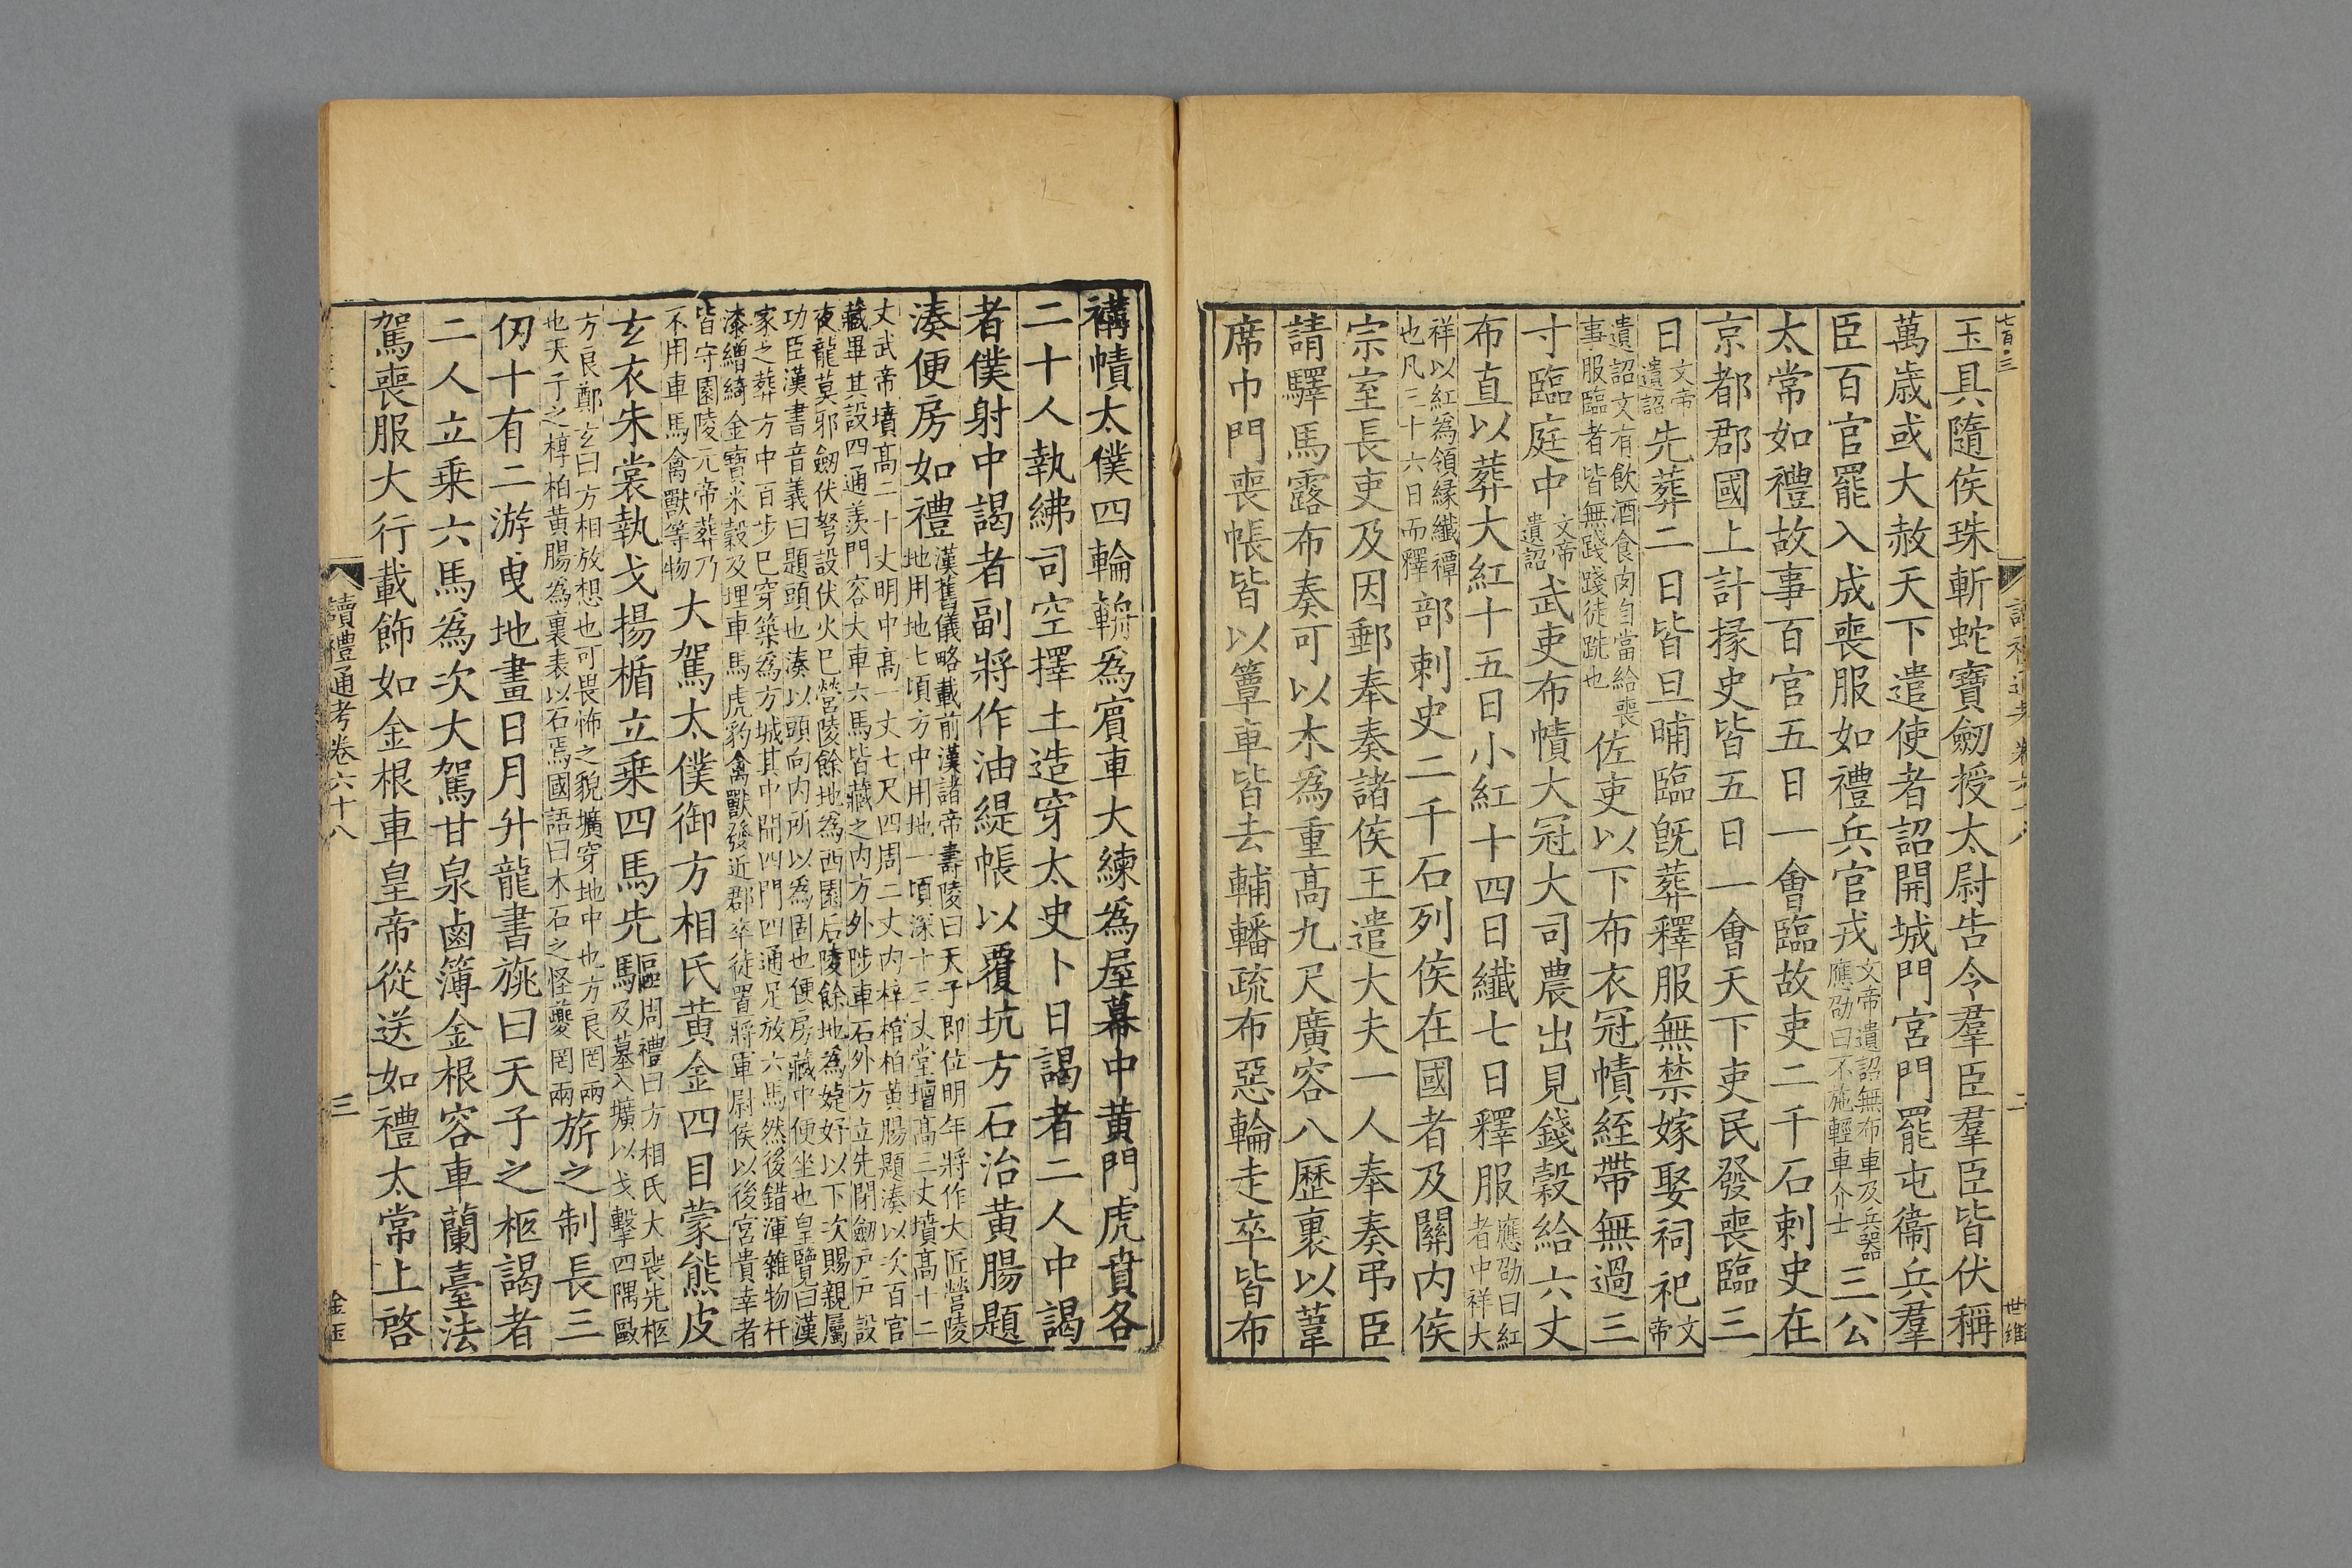 七百三
讀禮通考 卷六十八 二 世維
玉具隨侯珠斬蛇寶劒授太尉告令羣臣羣臣皆伏稱
萬歲或大赦天下遣使者詔開城門宮門罷屯衞兵羣
臣百官罷入成喪服如禮兵官戎
文帝遺詔無布車及兵器
應劭曰不施輕車介士
三公
太常如禮故事百官五日一會臨故吏二千石刺史在
京都郡國上計掾史皆五日一會天下吏民發喪臨三
日
文帝
遺詔
先葬二日皆旦晡臨旣葬釋服無禁嫁娶祠祀
文
帝
遺詔文有飲酒食肉自當給喪
事服臨者皆無踐踐徒跣也
佐吏以下布衣冠幘絰帶無過三
寸臨庭中
文帝
遺詔
武吏布幘大冠大司農出見錢穀給六丈
布直以葬大紅十五日小紅十四日纖七日釋服
應劭曰紅
者中祥大
祥以紅為領緣纖禫
也凡三十六日而釋
部刺史二千石列侯在國者及關內侯
宗室長吏及因郵奉奏諸侯王遣大夫一人奉奏弔臣
請驛馬露布奏可以木為重高九尺廣容八歷裹以葦
席巾門喪帳皆以簟車皆去輔轓疏布惡輪走卒皆布
褠幘太僕四輪輈為賓車大練為屋幕中黄門虎賁各
二十人執紼司空擇土造穿太史卜日謁者二人中謁
者僕射中謁者副將作油緹帳以覆坑方石治黄腸題
湊便房如禮
漢舊儀略載前漢諸帝壽陵曰天子即位明年將作大匠營陵
地用地七頃方中用地一頃深十三丈堂壇高三丈墳高十二
丈武帝墳高二十丈明中高一丈七尺四周二丈內梓棺柏黄腸題湊以次百官
藏畢其設四通羨門容大車六馬皆藏之內方外陟車石外方立先閉劒戶戶設
夜龍莫邪劒伏弩設伏火已營陵餘地為西園后陵餘地為婕妤以下次賜親屬
功臣漢書音義曰題頭也湊以頭向內所以為固也便房藏中便坐也皇覽曰漢
家之葬方中百步已穿築為方城其中開四門四通足放六馬然後錯渾雜物杆
漆繒綺金寶米穀及埋車馬虎豹禽獸發近郡卒徒置將軍尉侯以後宮貴幸者
皆守園陵元帝葬乃
不用車馬禽獸等物
大駕太僕御方相氏黄金四目蒙熊皮
玄衣朱裳執戈揚楯立乗四馬先驅
周禮曰方相氏大喪先柩
及墓入壙以戈擊四隅敺
方良鄭玄曰方相放想也可畏怖之貌壙穿地中也方良罔兩
也天子之椁柏黄腸為裏表以石焉國語曰木石之怪夔罔兩
旂之制長三
仞十有二游曳地畫日月升龍書旐曰天子之柩謁者
二人立乗六馬為次大駕甘泉鹵簿金根容車蘭臺法
駕喪服大行載飾如金根車皇帝從送如禮太常上啓
讀禮通考卷六十八 三 金玉